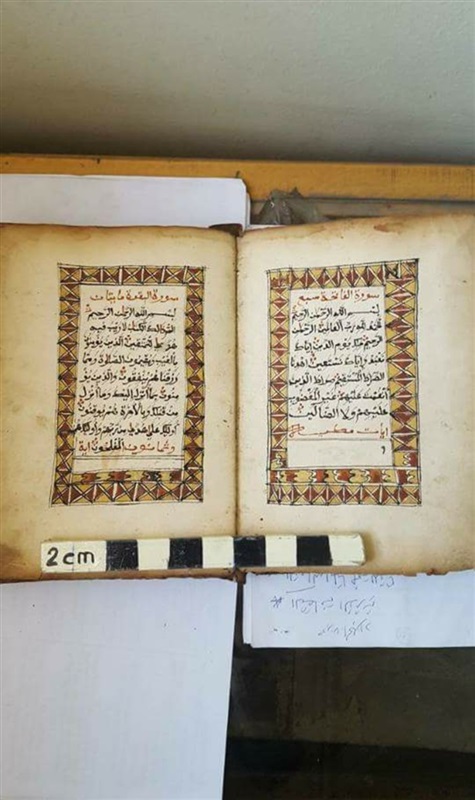 سورة الفاتحة سبع
بسم الله الرحمن الرحيم
الحمد لله رب العالمين الرحمن
الرحيم ملك يوم الدين إياك
نعبد وإياك نستعين اهدنا
الصراط المستقيم صراط الذين
أنعمت عليهم غير المغضوب
عليهم ولا الضالين
آيات
سورة البقرة مايتان
بسم الله الرحمن الرحيم
الم ذلك الكتاب لا ريب فيه
هدى للمتقين الذين يؤمنون
بالغيب ويقيمون الصلوة ومما
رزقناهم ينفقون والذين يؤ
منون بما أنزل إليك وما أنزل
من قبلك وبالآخرة هم يوقنون
أولئك على هدى من ربهم وأولئك هم
وثمانون المفلحون آية
2cm